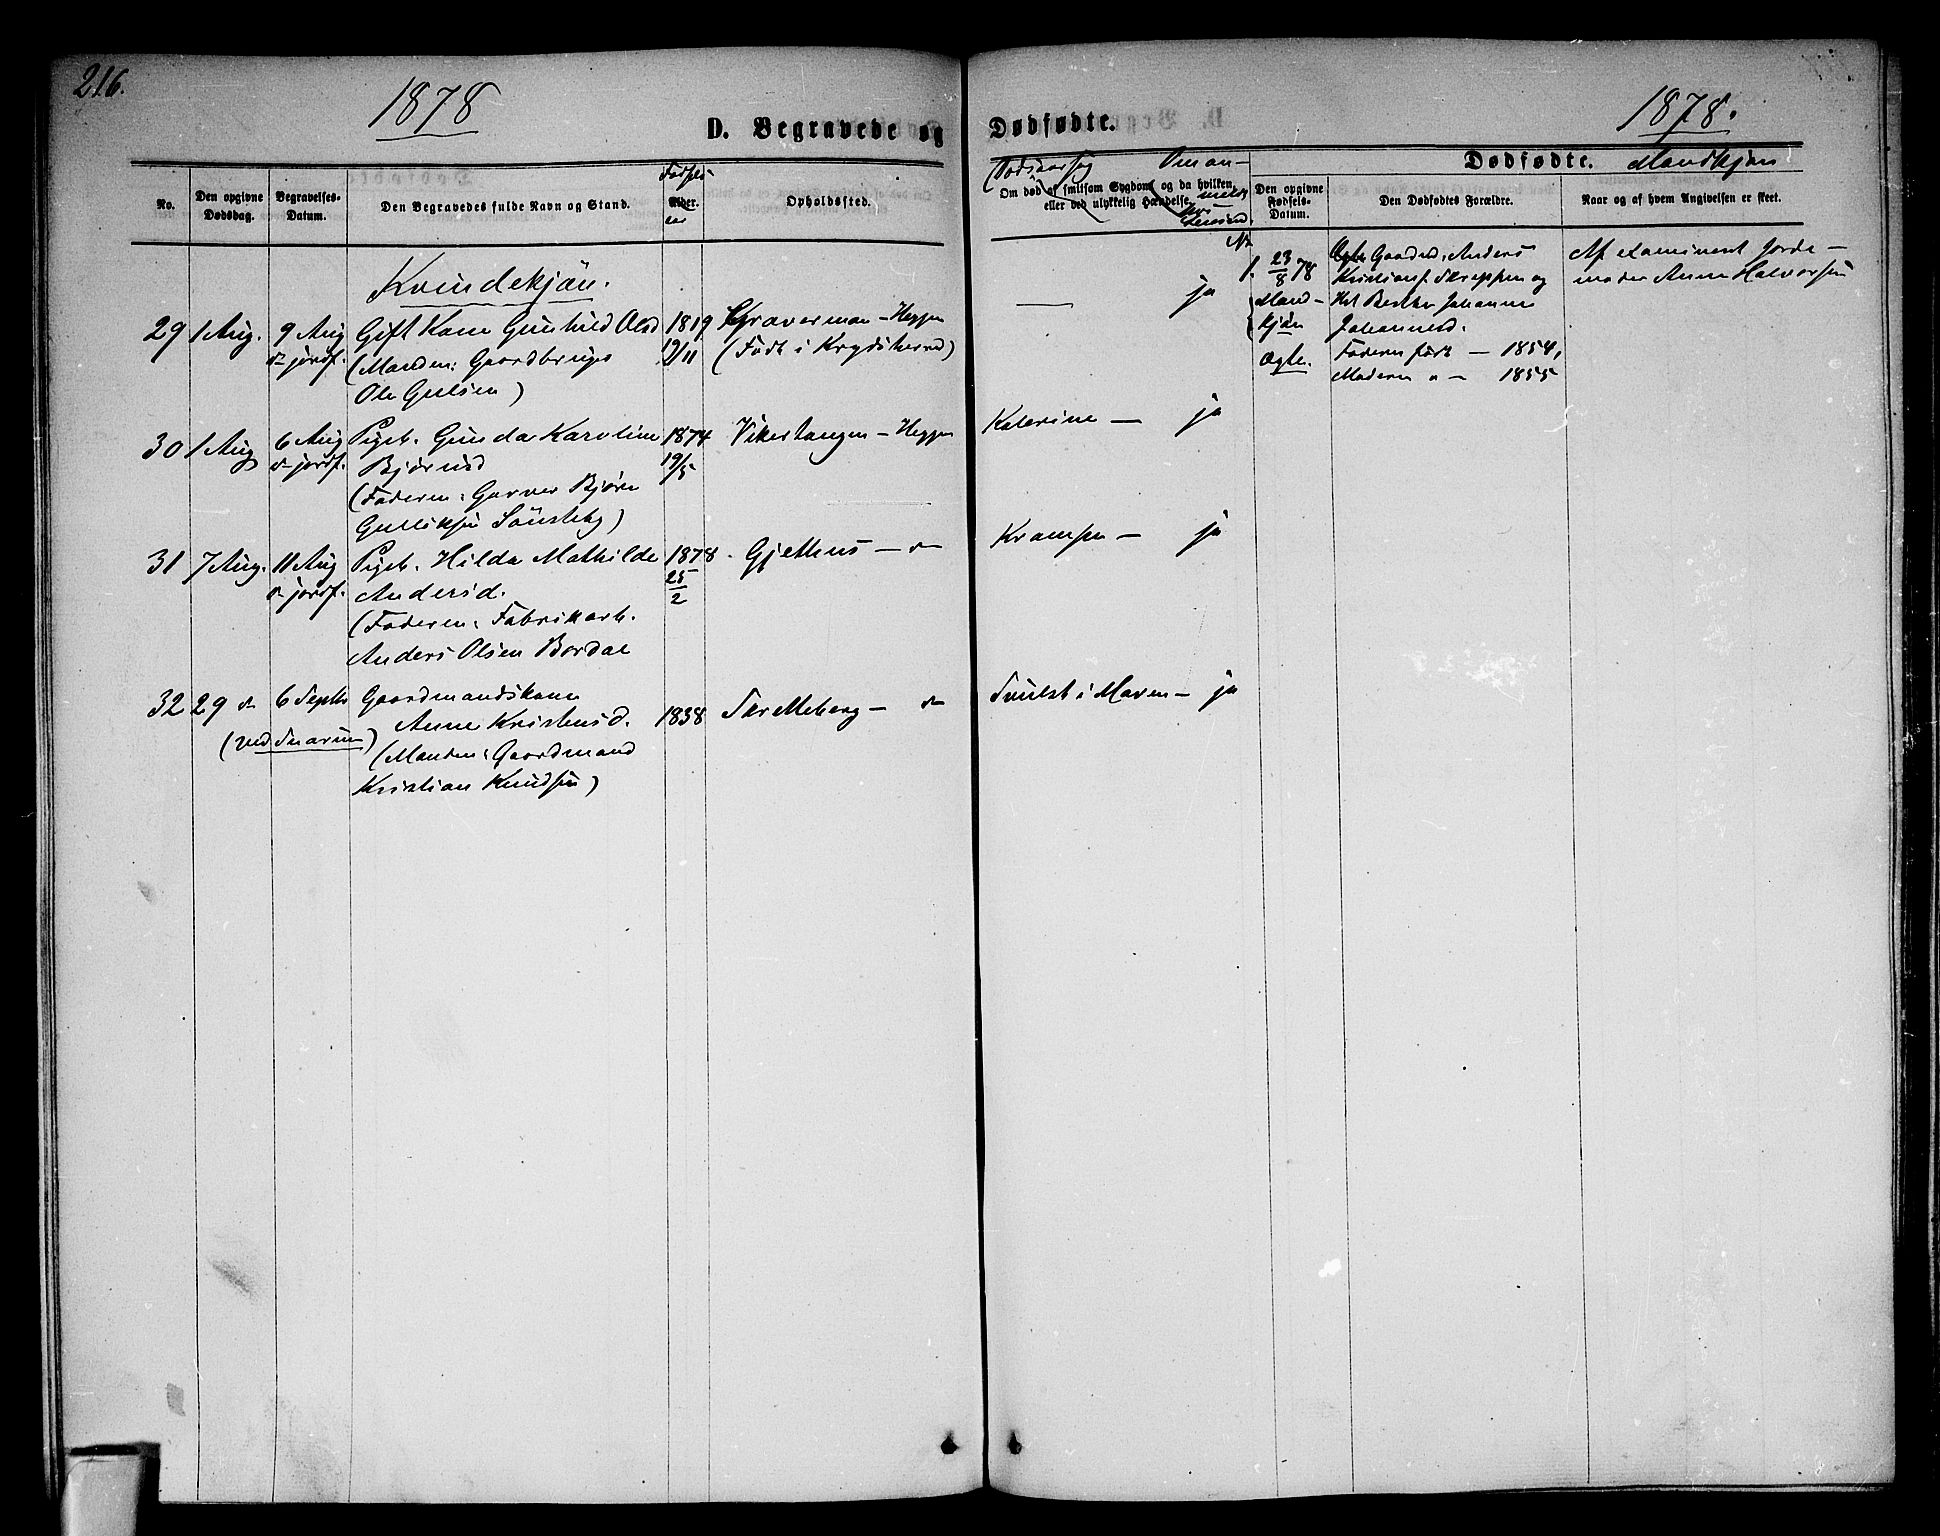 216.
1878
D. Begravede og
No.
Den opgivne Dødsdag.
Begravelses-Datum.
Den Begravedes fulde Navn og Stand.
Fødsels-
Alder.
aar
Opholdssted.
Kvindekjön.
29 1 Aug. 9 Aug Gift Kone Gunhild Olsd 1819 Graverman - Heggen
jordf. (Manden: Gaardbruger 19/11 (Født i Krydsherred)
Ole Gulsen)
30 1 Aug 6 Aug Pigeb. Gunda Karoline 1874 Vikertangen - Heggen
jordf. Bjørnsd 19/5
(Faderen: Garver Bjørn
Gulliksen Sönsteby)
31 7 Aug. 11 Aug Pigeb. Hilda Mathilde 1878 Gjethus -
jordf. Andersd. 25/2
(Faderen: Fabrikarb.
Anders Olsen Bordal
32 29 6 Septbr Gaardmandskone
Anne Kristensd. 1838 Skretteberg -
(ved Snarum) (Manden: Gaardmand
Kristian Knudsen)
Dødfødte.
1878.
Dødsaarsag
Om død af smitsom Sygdom, og da hvilken,
eller ved ulykkelig Hændelse.
Dødfødte. Mandkjön
Den opgivne Fødsels-Datum.
Den Dødfødtes Forældre.
Naar og af hvem Angivelsen er skeet.
No
— ja
Katerine — ja
Krampe — ja
Svulst i Maven — ja
1. 23/8 78 Gaardm. Anders Af examineret Jorde-
Mand- Kristians. Skreppen og moder Anne Halvorsen
kjön Hst Berthe Johanne
Johannesd.
Ægte. Faderen født — 1854,
Moderen " — 1855